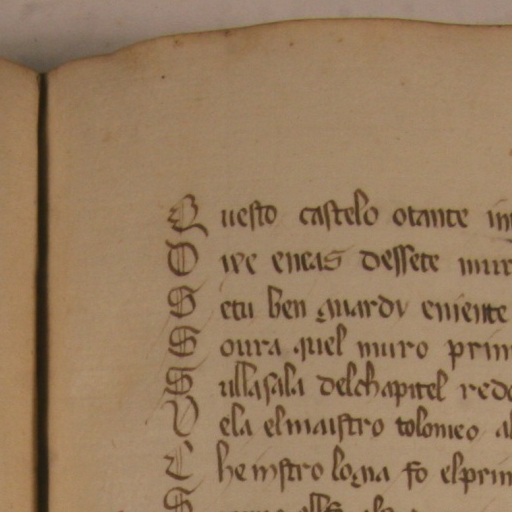 Questo castelo otante in
O we eneas dessete mur
Setu ben guardv eniente
Soura quel muro prim
Sullasala delchapitel redo
Vela elmaistro tolomeo al
Che instrologua fo elprin